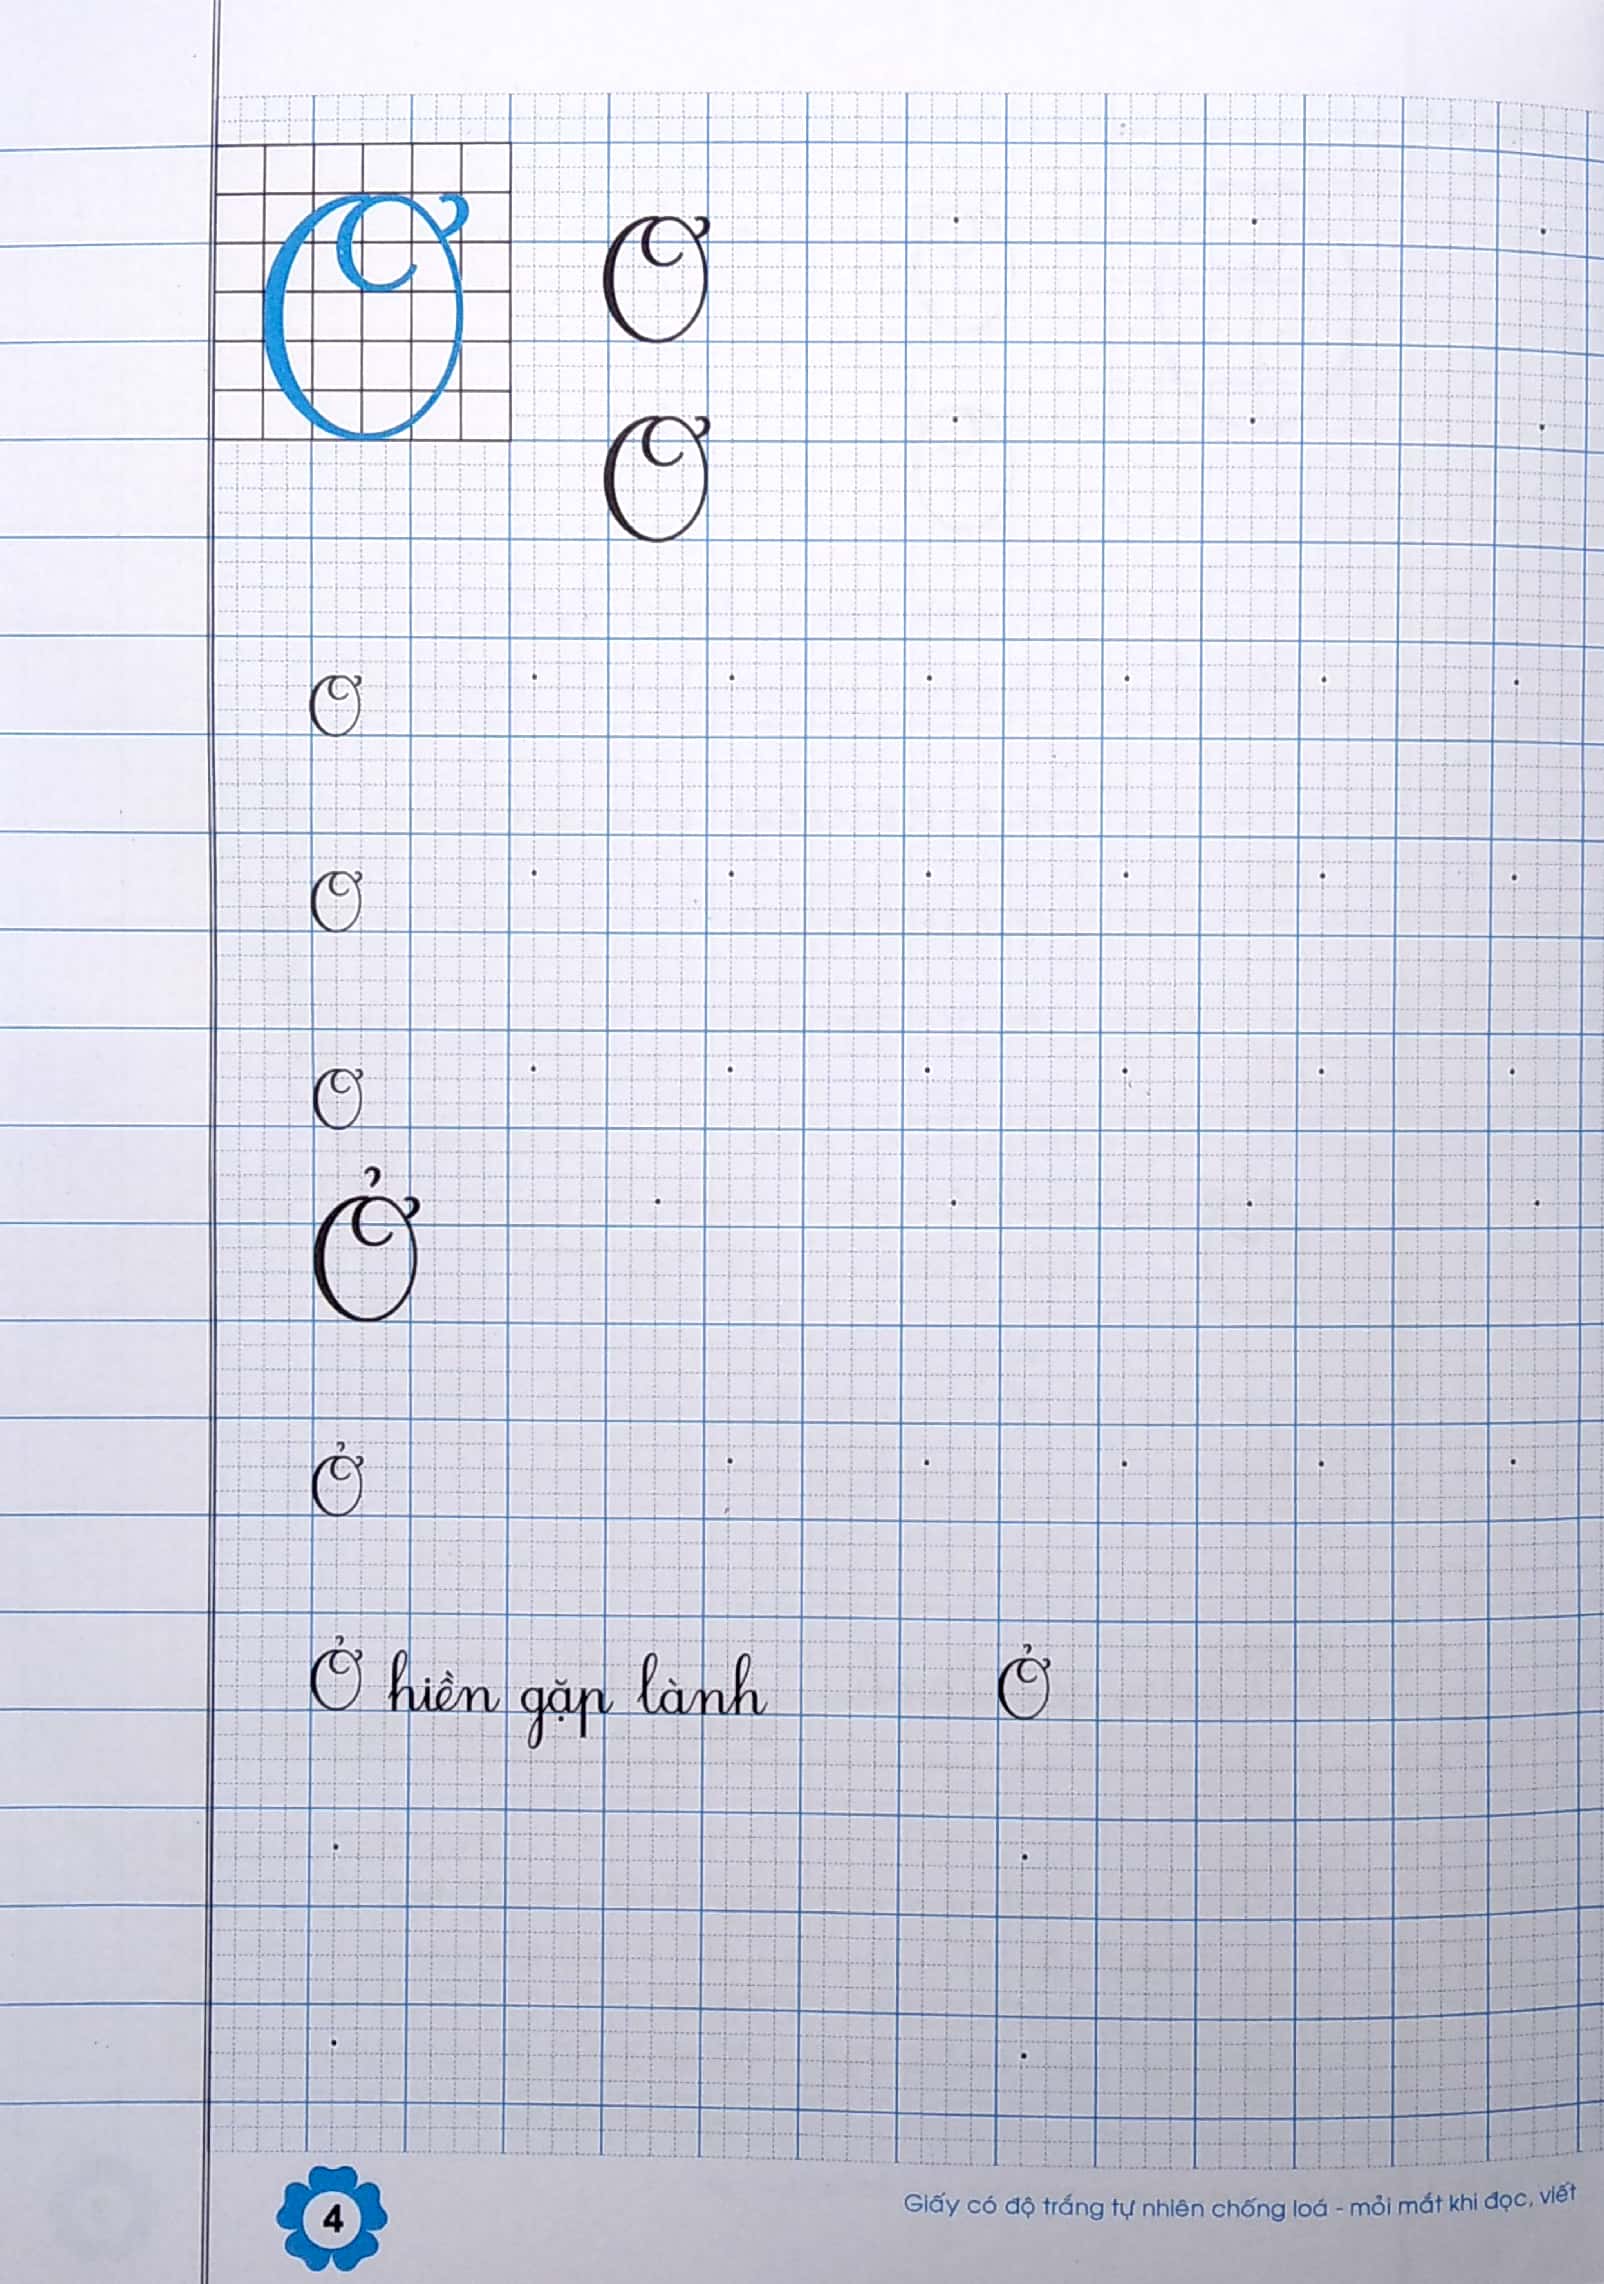 Ơ Ơ
Ơ
Ơ
Ơ
Ơ
Ở
Ở
Ở hiền gặp lành Ở
4
Giấy có độ trắng tự nhiên chống loá - mỏi mắt khi đọc, viết